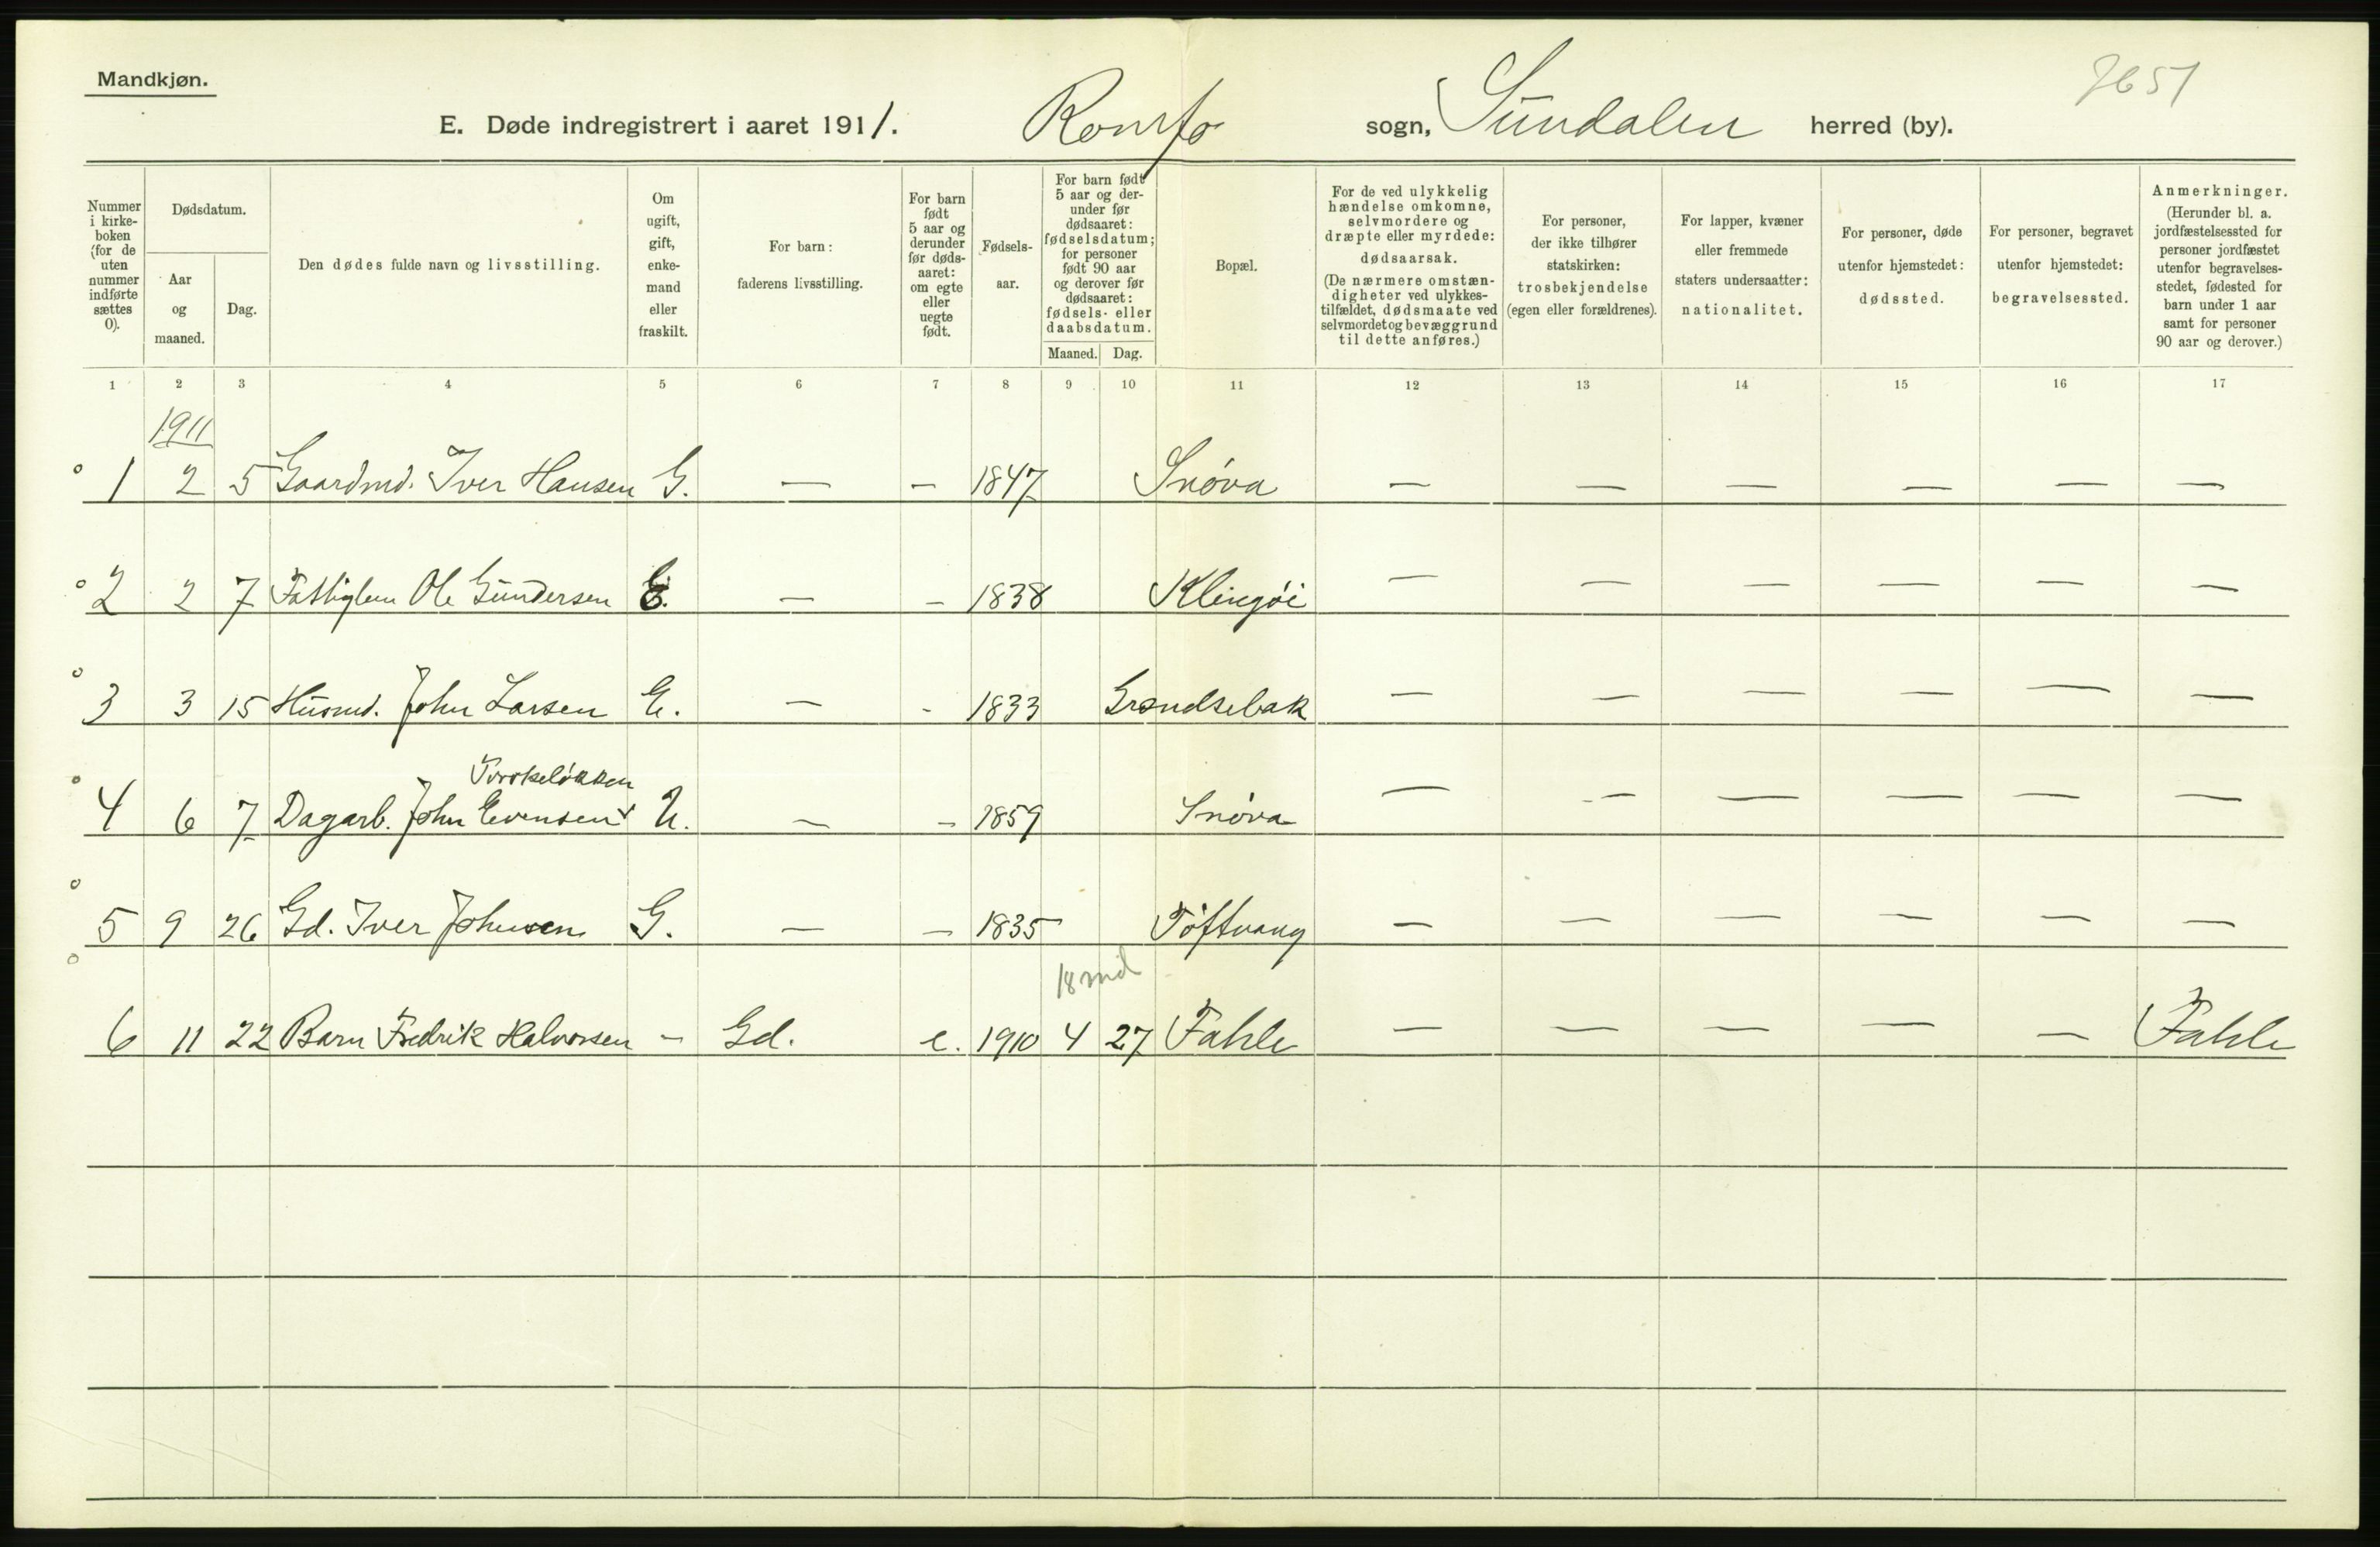 Mandkjøn.
7651
E. Døde indregistrert i aaret 1911. Romfo sogn, Sundalen herred (by).
Nummer i kirke-boken (for de uten nummer indførte sættes 0).
Dødsdatum.
Aar og maaned.
Dag.
Den dødes fulde navn og livsstilling.
Om ugift, gift, enke-mand eller fraskilt.
For barn: faderens livsstilling.
For barn født 5 aar og derunder før døds-aaret: om egte eller uegte født.
Fødsels-aar.
For barn født 5 aar og der-under før dødsaaret: fødselsdatum; for personer født 90 aar og derover før dødsaaret: fødsels- eller daabsdatum.
Maaned. Dag.
Bopæl.
For de ved ulykkelig hændelse omkomne, selvmordere og dræpte eller myrdede: dødsaarsak. (De nærmere omstæn-digheter ved ulykkes-tilfældet, dødsmaate ved selvmordet og bevæggrund til dette anføres.)
For personer, der ikke tilhører statskirken: trosbekjendelse (egen eller forældrenes).
For lapper, kvæner eller fremmede staters undersaatter: nationalitet.
For personer, døde utenfor hjemstedet: dødssted.
For personer, begravet utenfor hjemstedet: begravelsessted.
Anmerkninger. (Herunder bl. a. jordfæstelsessted for personer jordfæstet utenfor begravelses-stedet, fødested for barn under 1 aar samt for personer 90 aar og derover.)
1 2 3 4 5 6 7 8 9 10 11 12 13 14 15 16 17
1911
1 2 5 Gaardmd. Iver Hansen G. — — 1847 Snöva — — — — — —
2 2 7 Fattiglem Ole Gundersen E. — — 1838 Klingöi — — — — — —
3 3 15 Husmd. John Larsen E. — - 1833 Grøndsebak — — — — — —
Torskelökken
4 6 7 Dagarb. John Evensen U. — — 1859 Snöva — — — — — —
5 9 26 Gd. Iver Johnsen G. — — 1835 Töftvang — — — — — —
18 md
6 11 22 Barn Fredrik Halvorsen - Gd. e. 1910 4 27 Fahle — — — — — Fahle